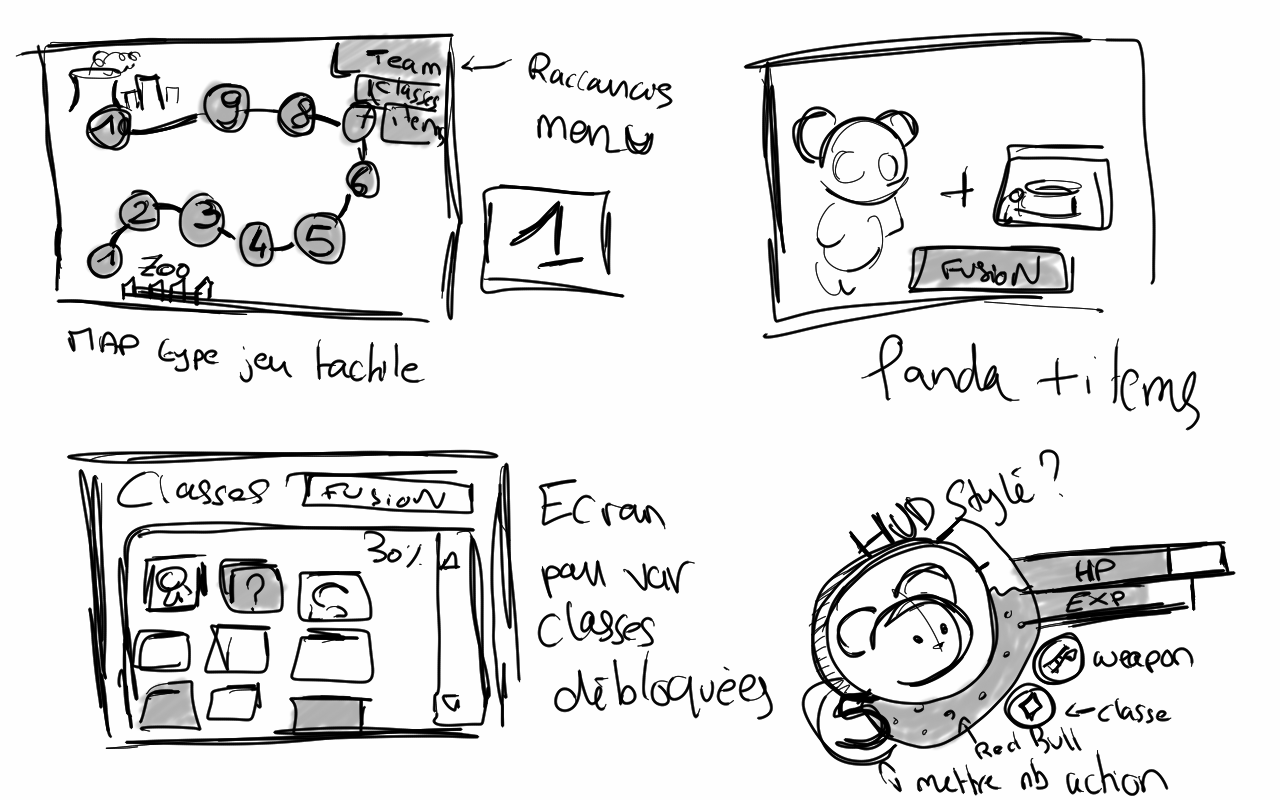 Team
classes
items
10
9
8
7
6
2
3
4
5
1
Zoo
MAP type jeu tactile
← Raccourcis
menu
1
+
FUSION
Panda + items
Classes
FUSION
30%
?
Ecran
pour voir
classes
débloquées
HUD Stylé ?
HP
EXP
weapon
← classe
Red Bull
5
mettre nb action